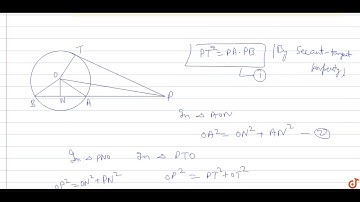 T
PT² = PA·PB (By Secant-tangent
property)
①
O
B N A P
In △ AON
OA² = ON² + AN² — ②
In △ PNO In △ PTO
OP² = ON² + PN² OP² = PT² + OT²